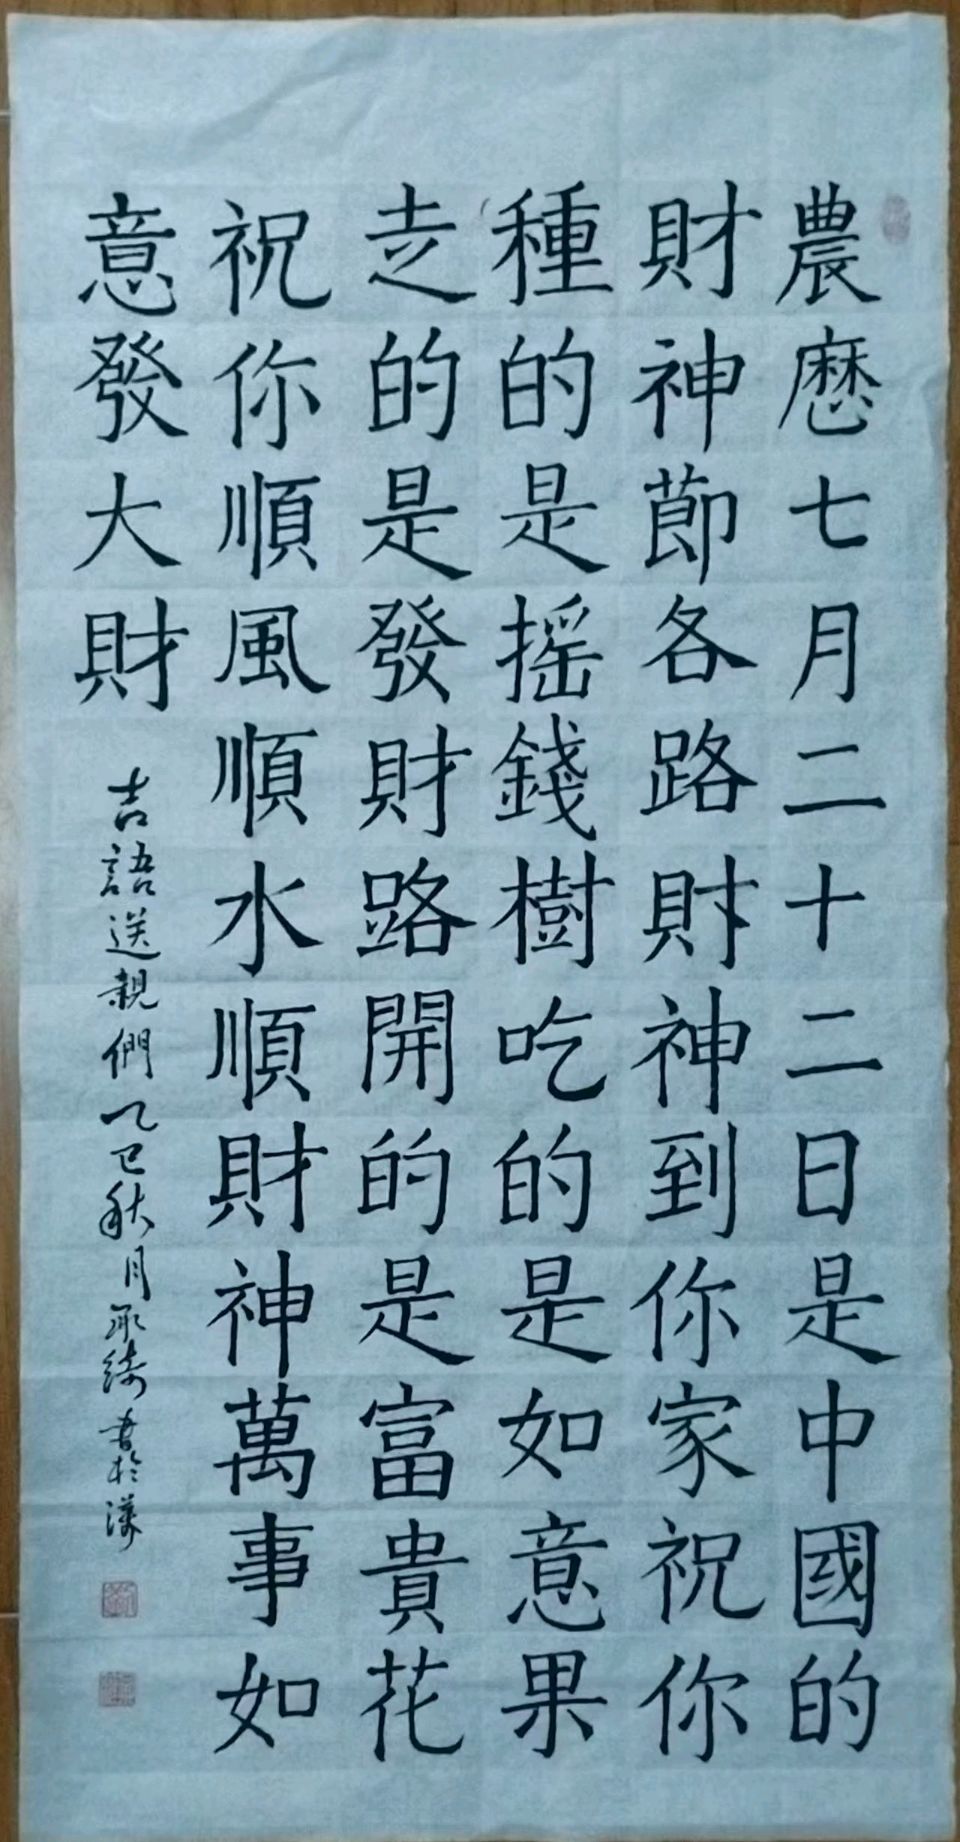 農曆七月二十二日是中國的
財神節各路財神到你家祝你
種的是摇錢樹吃的是如意果
走的是發財路開的是富貴花
祝你順風順水順財神萬事如
意發大財
吉語送親們乙巳秋月承綺書於漢